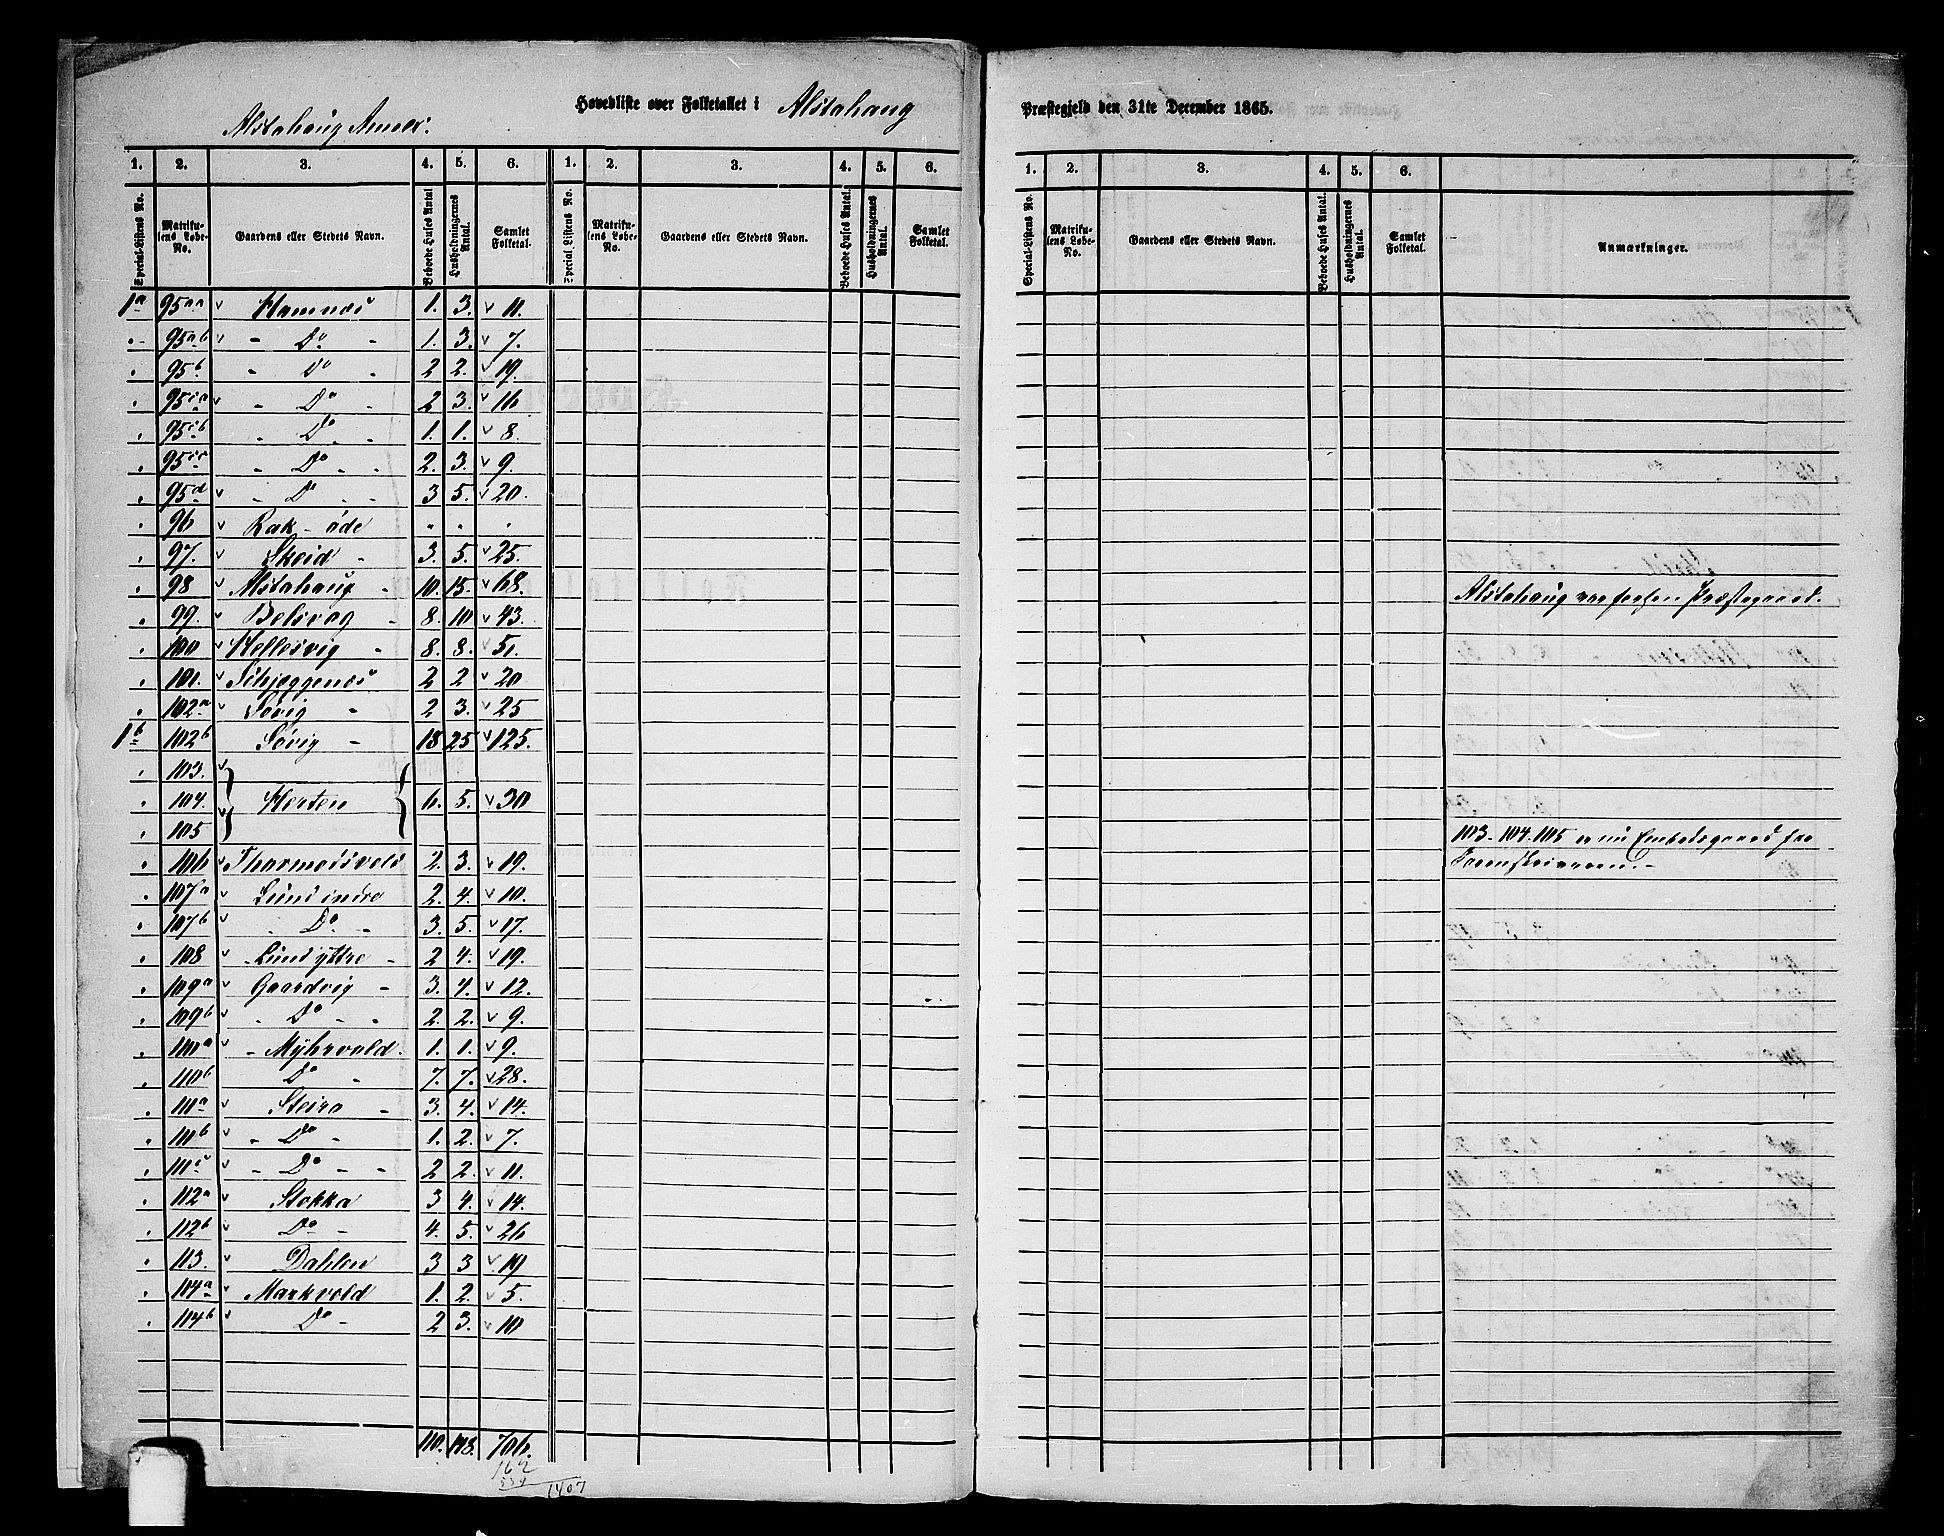 Hovedliste over Folketallet i Alstahaug Præstegjeld den 31te December 1865.
Alstahaug Annex.
1. 2. 3. 4. 5. 6. 1. 2. 3. 4. 5. 6. 1. 2. 3. 4. 5. 6.
Special-Listens No. Matrikulens Løbe-No. Gaardens eller Stedets Navn. Beboede Huses Antal Husholdningernes Antal. Samlet Folketal. Special Listens No. Matrikulens Løbe-No. Gaardens eller Stedets Navn. Beboede Huses Antal. Husholdningernes Antal. Samlet Folketal. Special-Listens No. Matrikulens Løbe-No. Gaardens eller Stedets Navn. Beboede Huses Antal. Husholdningernes Antal. Samlet Folketal. Anmærkninger.
1a 95aa v Hamnæs 1. 3. v 11.
" 95ab v " Do " 1. 3. v 7.
" 95b " Do " 2 2. v 19.
" 95ca v " Do " 2 3. v 16
" 95cb " Do " 1. 1. v 8.
" 95cc " Do " " 2. 3. v 9.
" 95d v " Do " " 3 5. v 20.
" 96 v Rak - øde " " "
" 97. v Skeid - 3. 5. v 25.
" 98 v Alstahaug - 10. 15. v 68. Alstahaug er Præstegaard.
" 99. v Belsvag - 8. 10 v 43.
" 100 v Hellesvig - 8. 8. v 51.
" 101. v Sibjæggenæs 2 2. v 20
" 102a v Søvig - 2 3. v 25
1b 102b Søvig - 18 25 v 125.
" 103. v
" 104. v } Hesten { 6. 5. v 30
" 105
103-104-105 er nu Embedsgaard for Sorenskriveren.-
" 106 v Tharmodsvold 2. 3. v 19.
" 107a v Lund indre 2. 4. v 10.
" 107b v " Do - 3. 5. v 17.
" 108 v - Lund yttre - 2 4. v 19.
" 109a v Gaardvig - 3. 4. v 12.
" 109b v " Do - " 2. 2. v 9.
" 110a - Myhrvold. 1. 1. v 9.
" 110b v Do - 7. 7. v 28.
" 111a v Steiro - 3. 4. v 14.
" 111b v - Do - 1. 2. v 7.
" 111c v - Do - - 2 2. v 11.
" 112a v Stokka 3 4. v 14.
" 112b v Do - 4. 5. v 26
" 113. v Dahlen 3 3 v 19
" 114a v Markvold 1. 2. v 5.
" 114b v Do - 2 3. v 10
110. 148. 706.
162
539
1407